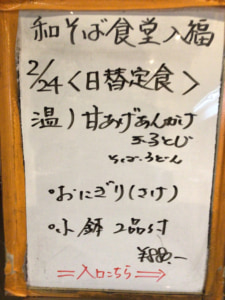 和そば食堂入福
2/24<日替定食>
温)甘あげあんかけ
玉子とじ
そば・うどん
・おにぎり(さけ)
・小鉢 2品付
¥880.-
=入口こちら⇒